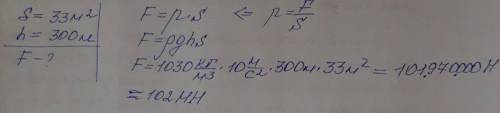 S = 33м²
h = 300м
F - ?
F = p · S <= p = F/S
F = ρghS
F = 1030 кг/м3 · 10 м/с2 · 300м · 33м² = 101.970.000Н
≈ 102МН